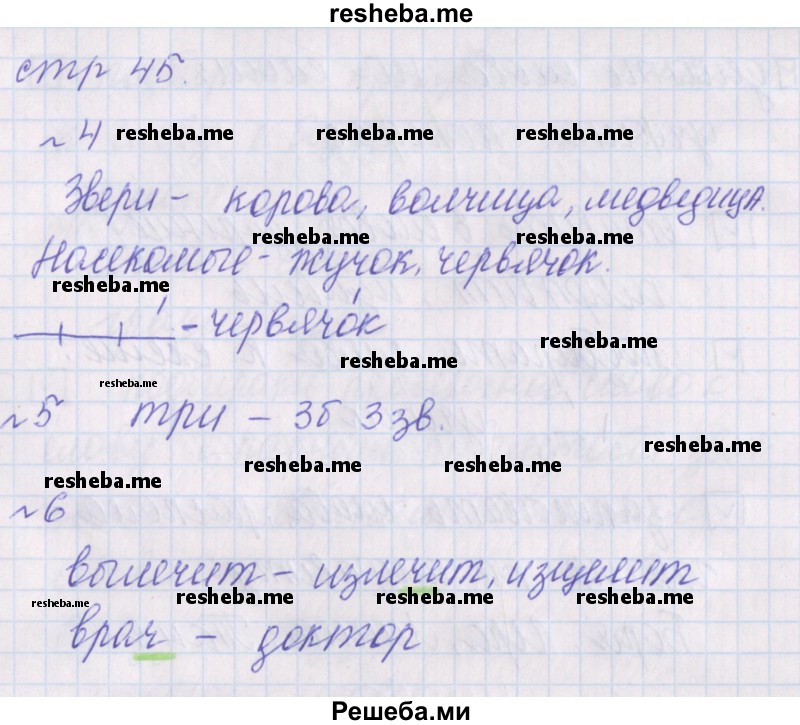 resheba.me
стр 45.
№4 resheba.me resheba.me resheba.me
Звери - корова, волчица, медведица.
resheba.me resheba.me
Насекомые - жучок, червячок.
resheba.me
- червячо́к
resheba.me
resheba.me
resheba.me
№5 три - 3б 3 зв.
resheba.me
resheba.me resheba.me
resheba.me
№6
вылечит - излечит, изцелит
resheba.me resheba.me resheba.me resheba.me
врач - доктор
Решеба.ми